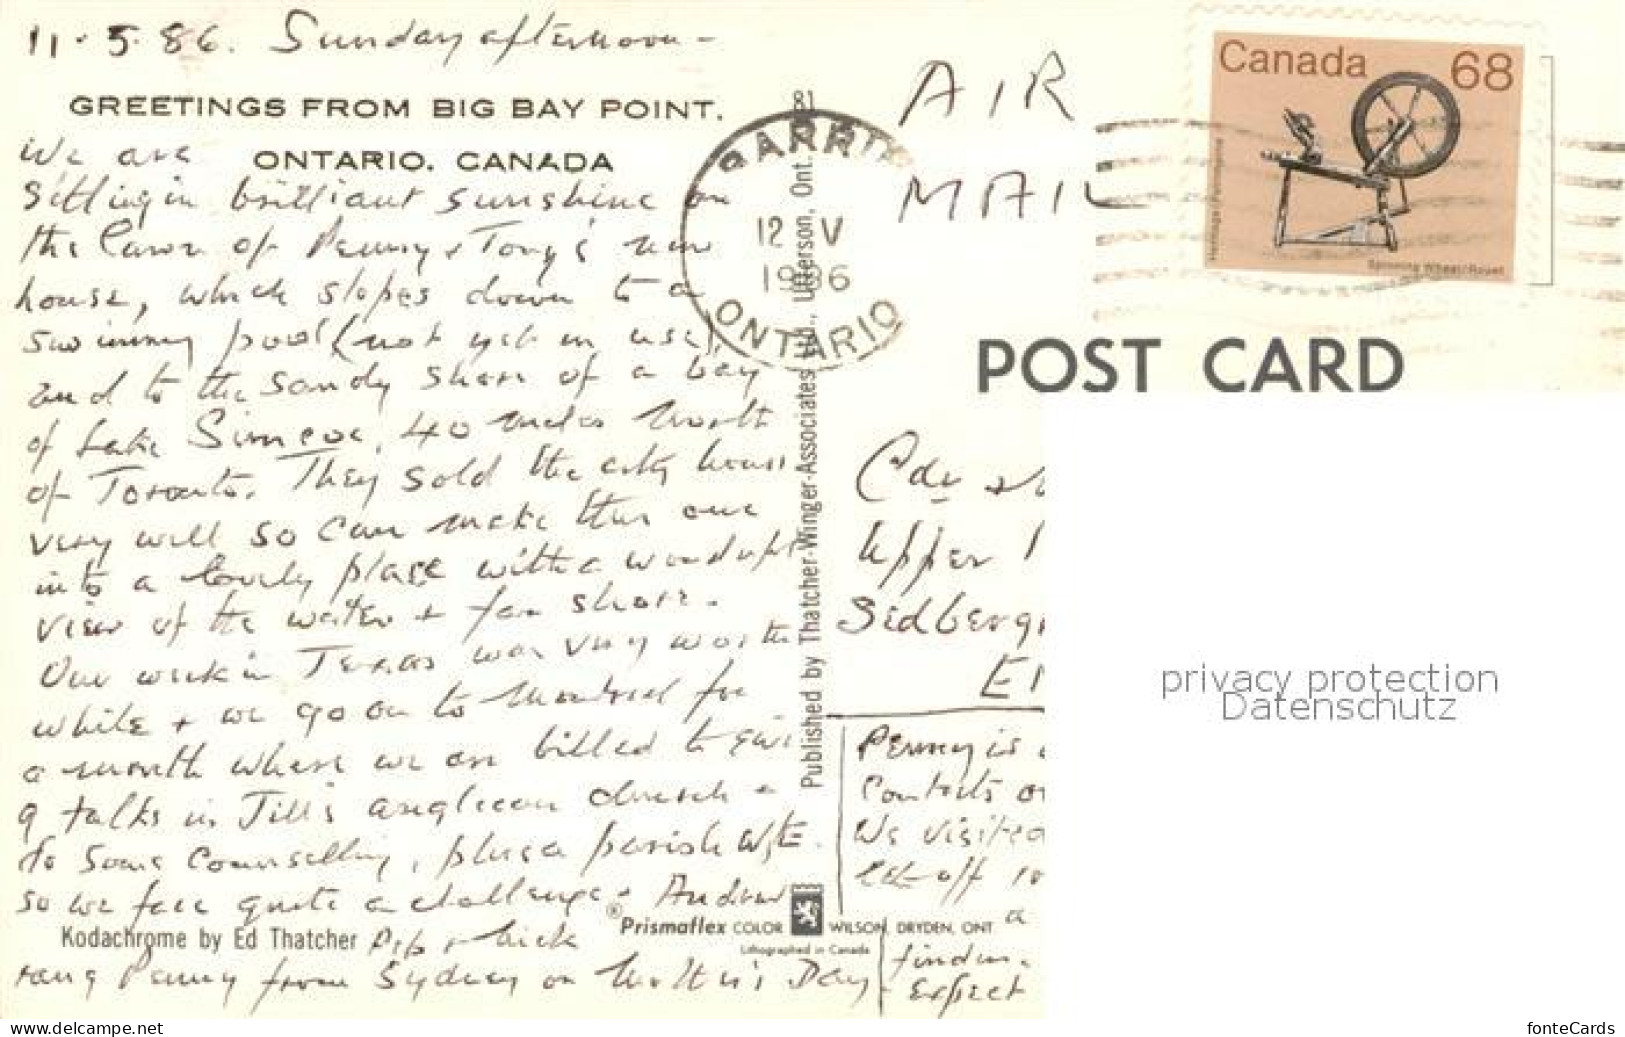 11.5.86. Sunday afternoon -
GREETINGS FROM BIG BAY POINT.
ONTARIO. CANADA
We are
Sitting in brilliant sunshine on
the lawn of Penny & Tony's new
house, which slopes down to a
swimming pool (not yet in use),
and to the sandy shore of a bay
of Lake Simcoe, 40 miles North
of Toronto. They sold the city house
very well so can make this one
into a lovely place with a wonderful
view of the water & far shore.
Our week in Texas was very worth
while & we go on to Montreal for
a month where we are billed to give
9 talks in Jill's anglican church -
do some Counselling, plus a parish W/E.
so we face quite a challenge. Andrew
Pip & Nick
rang Penny from Sydney on Mother's Day
Kodachrome by Ed Thatcher
81
Published by Thatcher-Winger-Associates Ltd., Utterson, Ont.
Prismaflex COLOR
WILSON, DRYDEN, ONT
Lithographed in Canada
BARRIE
12 V
1986
ONTARIO
AIR
MAIL
Canada 68
Heritage/Patrimoine
Spinning Wheel/Rouet
POST CARD
Cdr &
Upper
Sedberg
Penny is
Contacts on
We visited
let-off
a
finds.
Expect
privacy protection
Datenschutz
www.delcampe.net
fonteCards